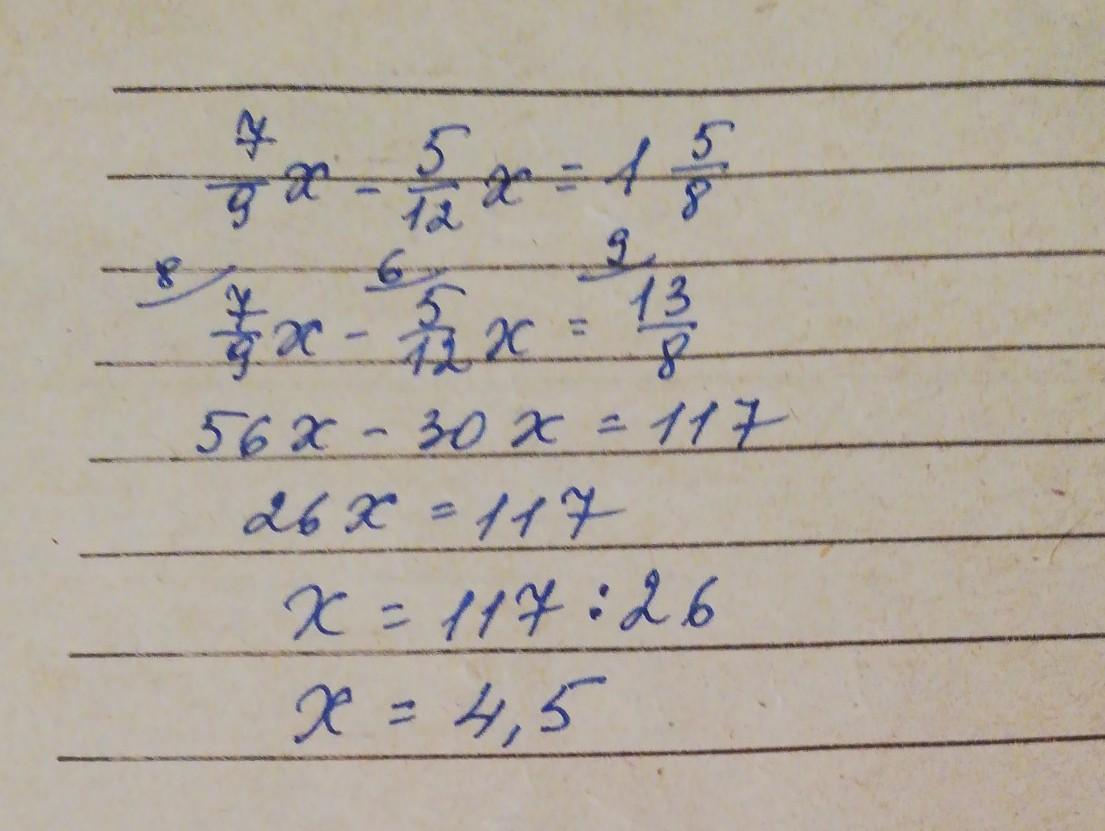 7/9 x - 5/12 x = 1 5/8
8 6 9
7/9 x - 5/12 x = 13/8
56x - 30x = 117
26x = 117
x = 117 : 26
x = 4,5